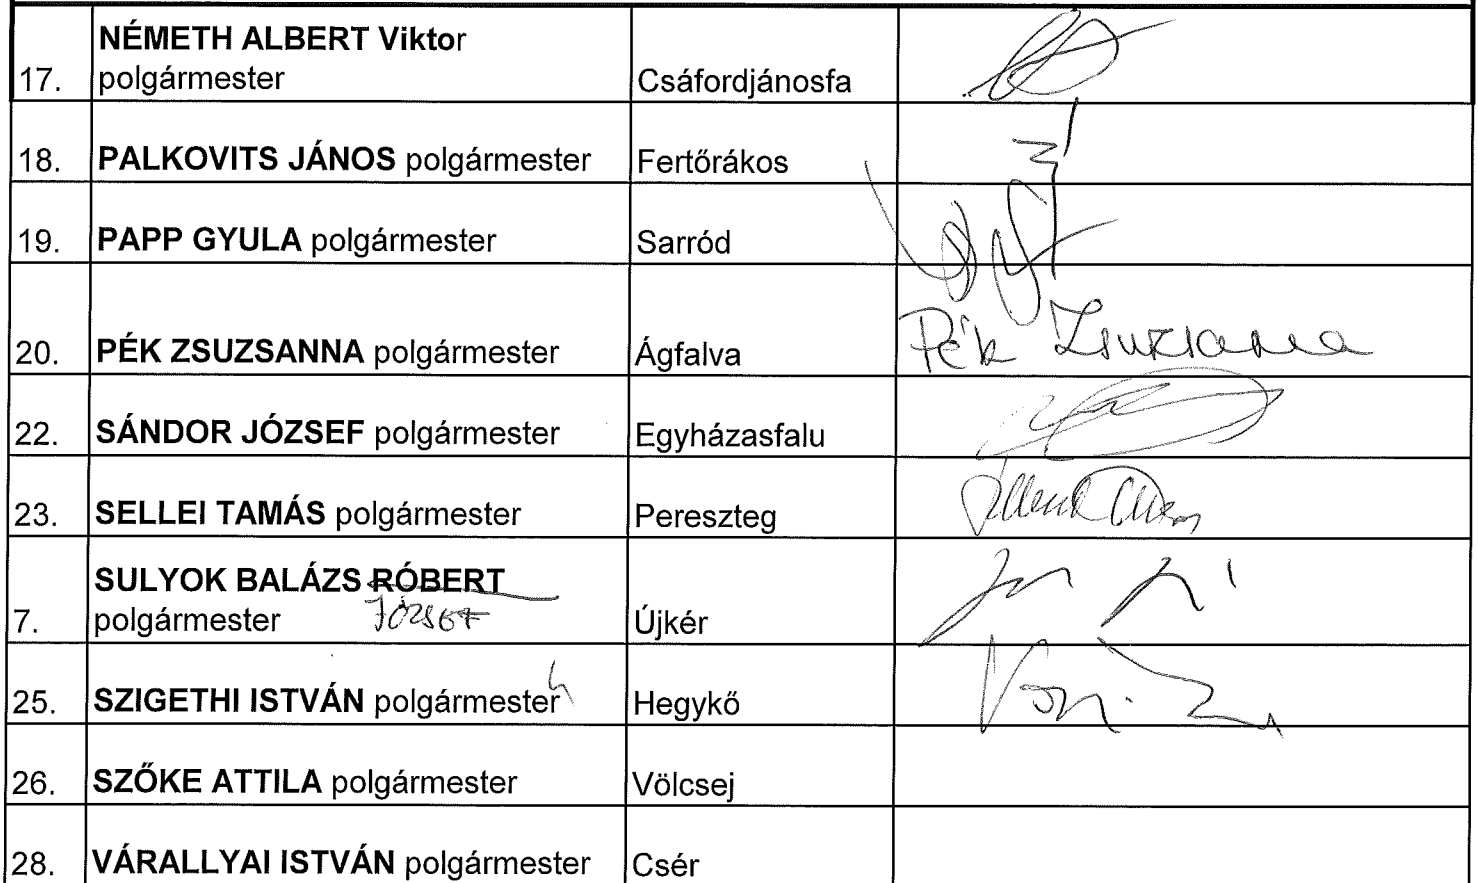 NÉMETH ALBERT Viktor
17. polgármester Csáfordjánosfa
18. PALKOVITS JÁNOS polgármester Fertőrákos
19. PAPP GYULA polgármester Sarród
20. PÉK ZSUZSANNA polgármester Ágfalva Pék Zsuzsanna
22. SÁNDOR JÓZSEF polgármester Egyházasfalu
23. SELLEI TAMÁS polgármester Pereszteg
SULYOK BALÁZS RÓBERT
7. polgármester JÓZSEF Újkér
25. SZIGETHI ISTVÁN polgármester Hegykő
26. SZŐKE ATTILA polgármester Völcsej
28. VÁRALLYAI ISTVÁN polgármester Csér